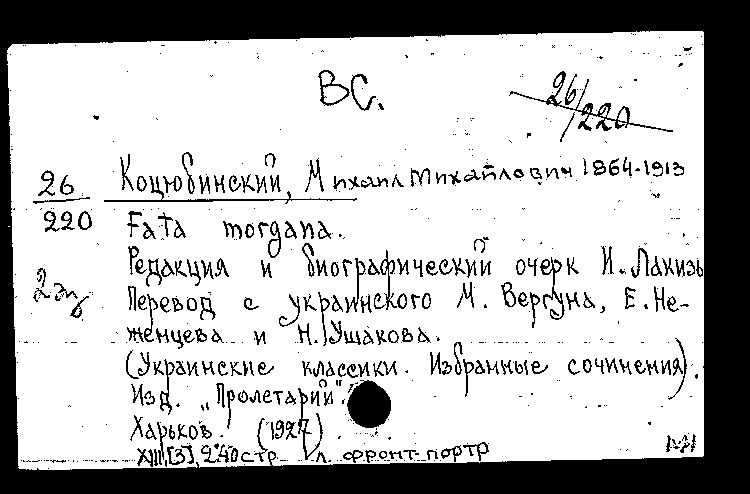 ВС.
26/220
26
220
2 эк
Коцюбинский, Михаил Михайлович 1864-1913
Fata morgana.
Редакция и биографический очерк И. Лакизы
Перевод с украинского М. Вергуна, Е. Не-
женцева и Н. Ушакова.
(Украинские классики. Избранные сочинения).
Изд. „Пролетарий".
Харьков. (1927)
XIII, [3], 240 стр. 1 л. фронт-портр